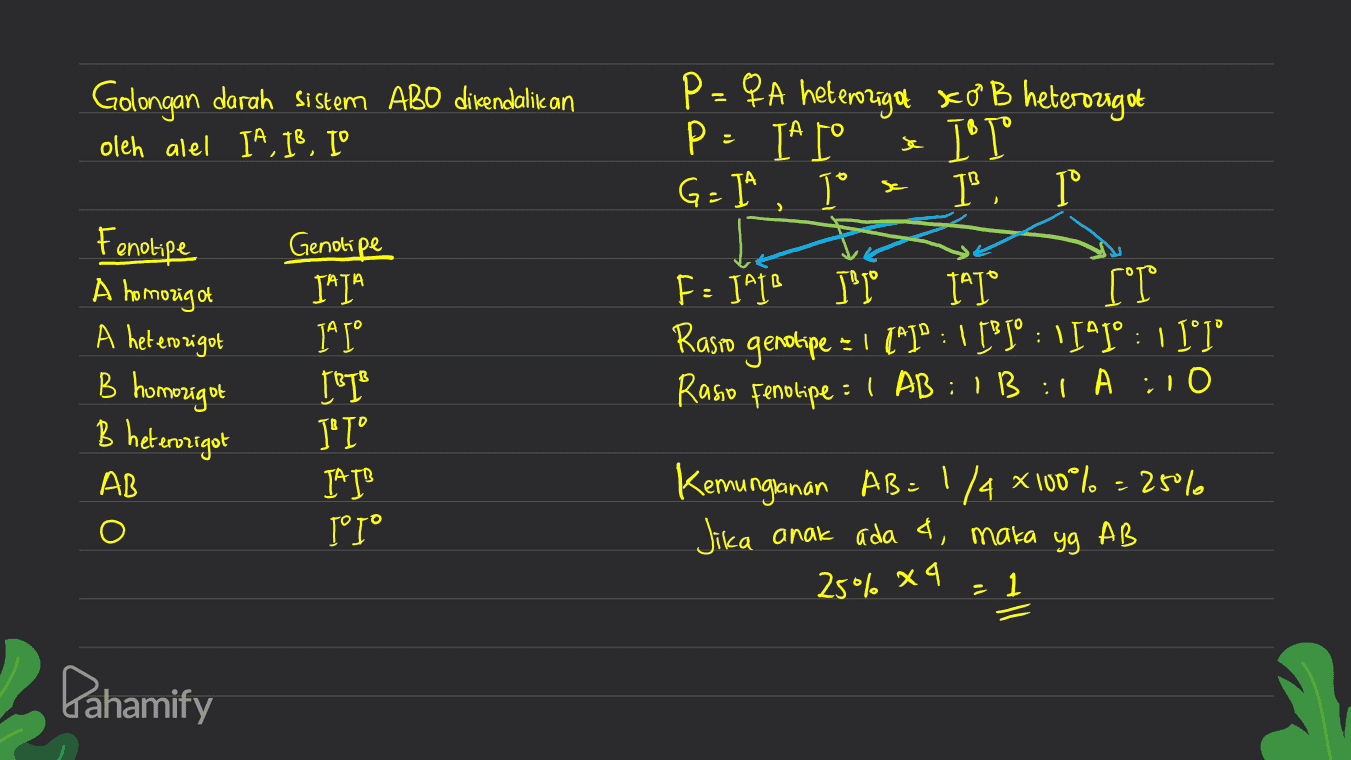 Golongan darah sistem ABO dikendalikan
oleh alel Iᴬ, Iᴮ, I⁰
Fenotipe Genotipe
A homozigot IᴬIᴬ
A heterozigot IᴬI⁰
B homozigot IᴮIᴮ
B heterozigot IᴮI⁰
AB IᴬIᴮ
O I⁰I⁰
P = ♀A heterozigot x ♂ B heterozigot
P = Iᴬ I⁰ x Iᴮ I⁰
G = Iᴬ, I⁰ x Iᴮ, I⁰
F = IᴬIᴮ IᴮI⁰ IᴬI⁰ I⁰I⁰
Rasio genotipe = 1 IᴬIᴮ : 1 IᴮI⁰ : 1 IᴬI⁰ : 1 I⁰I⁰
Rasio Fenotipe = 1 AB : 1 B : 1 A : 1 O
Kemungkinan AB = 1/4 x 100% = 25%
Jika anak ada 4, maka yg AB
25% x 4 = 1
Pahamify